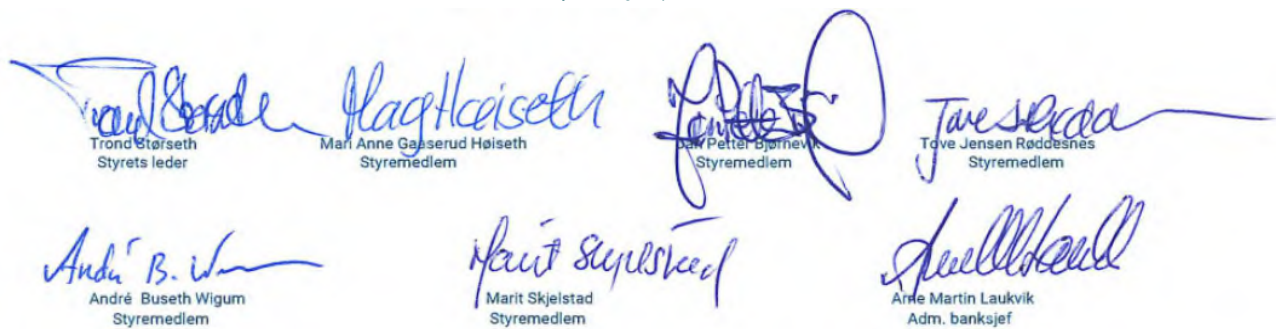 Trond Størseth
Styrets leder
Mari Anne Gaaserud Høiseth
Styremedlem
Jan Petter Bjørnevik
Styremedlem
Tove Jensen Røddesnes
Styremedlem
André B. W
André Buseth Wigum
Styremedlem
Marit Skjelstad
Marit Skjelstad
Styremedlem
Arne Martin Laukvik
Adm. banksjef